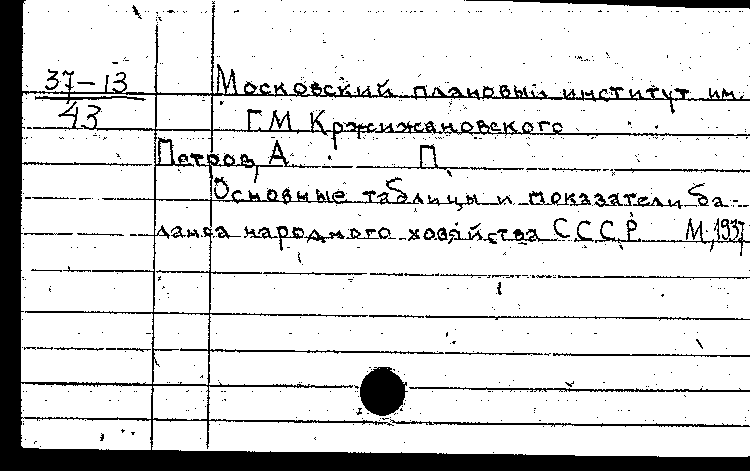 37-13
43
Московский плановый институт им.
Г.М. Кржижановского
Петров, А. П.
Основные таблицы и показатели ба-
ланса народного хозяйства С.С.С.Р. М., 1937